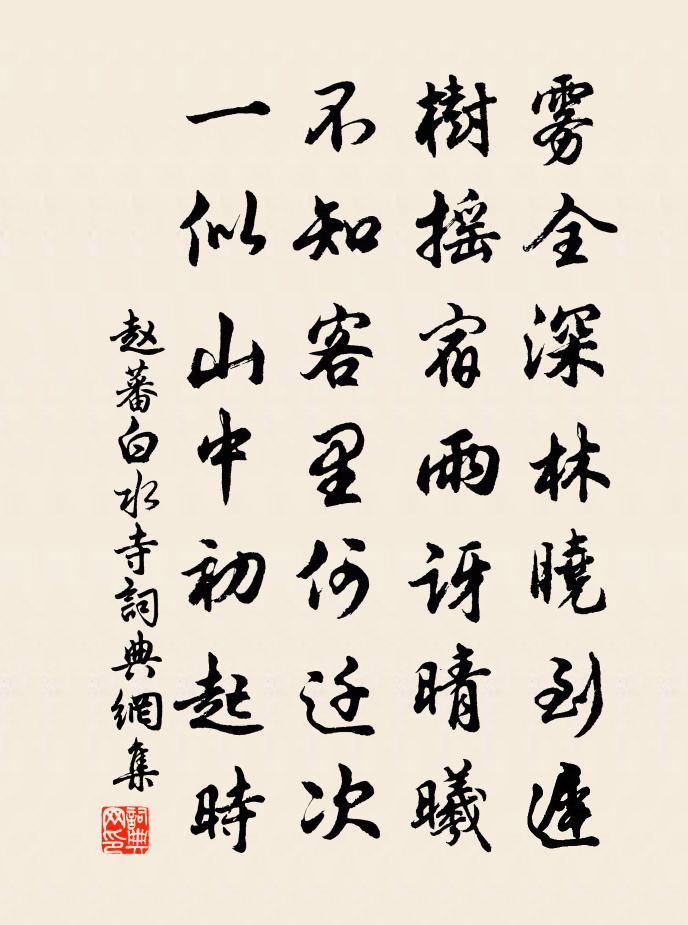 雾全深林曉到遲
樹摇宿雨訝晴曦
不知客里何迁次
一似山中初起時
赵蕃白水寺詞典網集
詞典网印